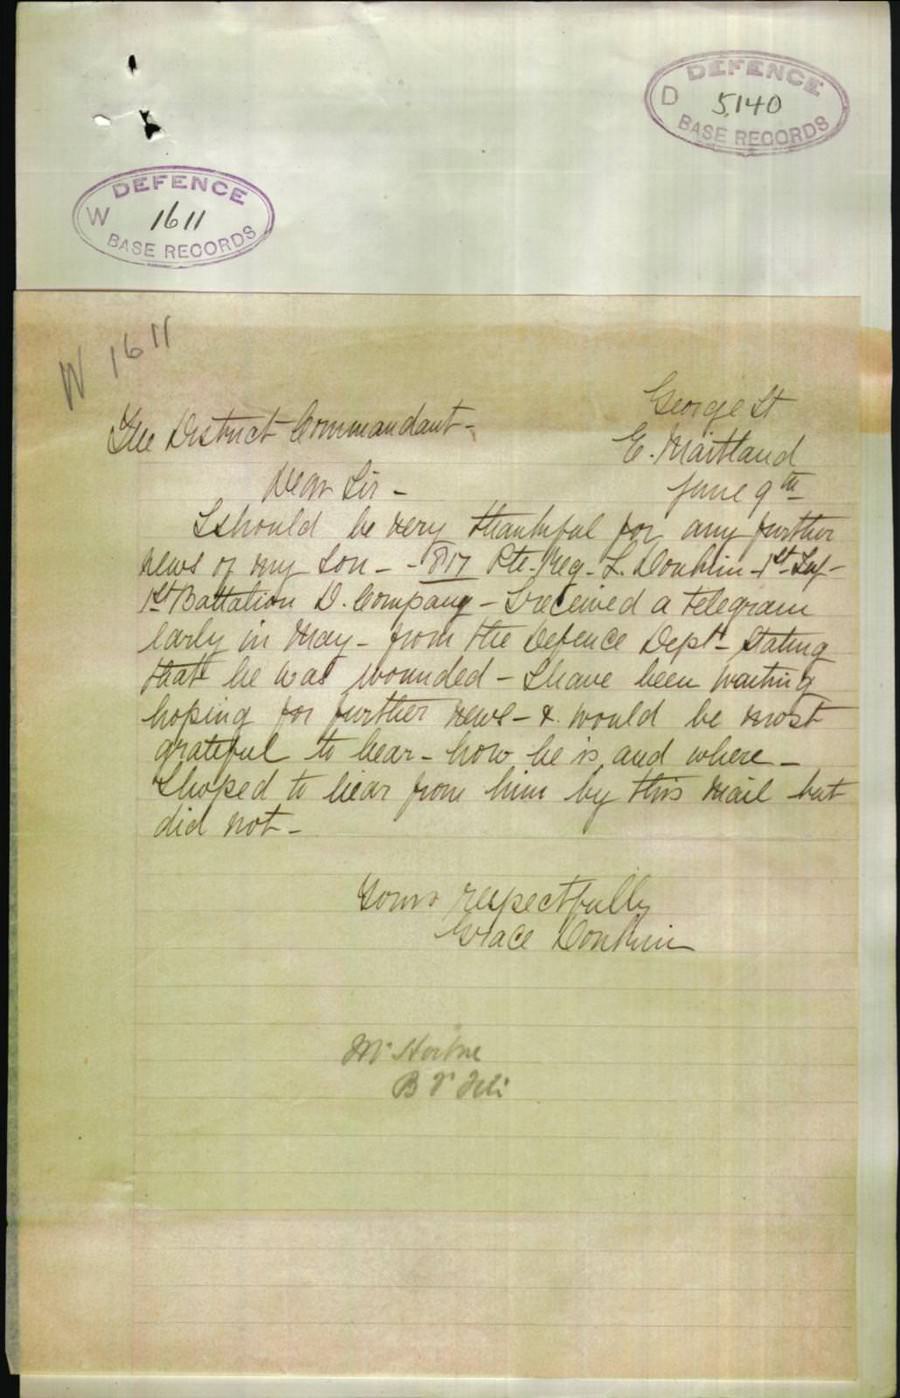 DEFENCE
D 5,140
BASE RECORDS
DEFENCE
W 1611
BASE RECORDS
W 1611
George St
The District Commandant -
E. Maitland
Dear Sir -
June 9th
I should be very thankful for any further
news of my Son - - 817 Pte. Reg. L. Donkin - 1st Inf -
1st Battalion D. Company - I received a telegram
early in May - from the Defence Dept - stating
that he was wounded - I have been waiting
hoping for further news - & would be most
grateful to hear - how he is, and where -
I hoped to hear from him by this mail but
did not -
Yours respectfully
Grace Donkin
Mr
B